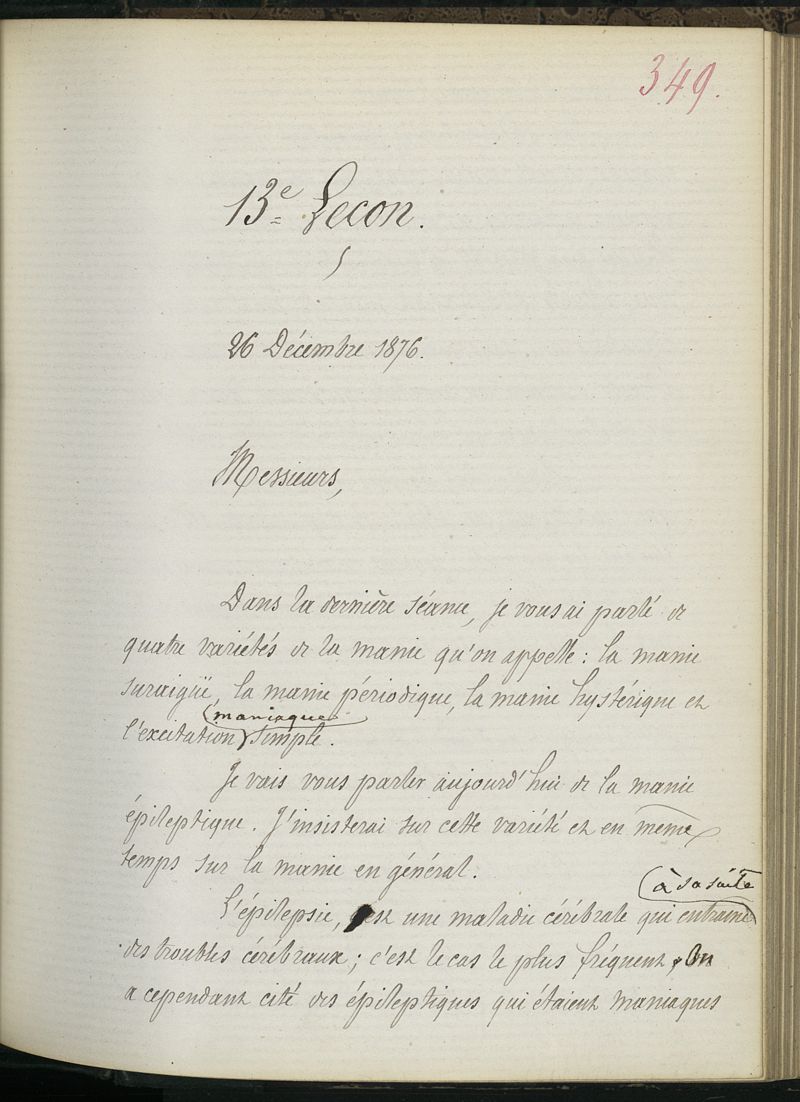 349.
13e Leçon.
26 Décembre 1876.
Messieurs,
Dans la dernière séance, je vous ai parlé de
quatre variétés de la manie qu'on appelle : la manie
suraigüe, la manie périodique, la manie hystérique et
(maniaque
l'excitation simple.
Je vais vous parler aujourd'hui de la manie
épileptique. J'insisterai sur cette variété et en même
temps sur la manie en général.
(à sa suite
L'épilepsie, est une maladie cérébrale qui entraine
des troubles cérébraux ; c'est le cas le plus fréquent. On
a cependant cité des épileptiques qui étaient maniaques